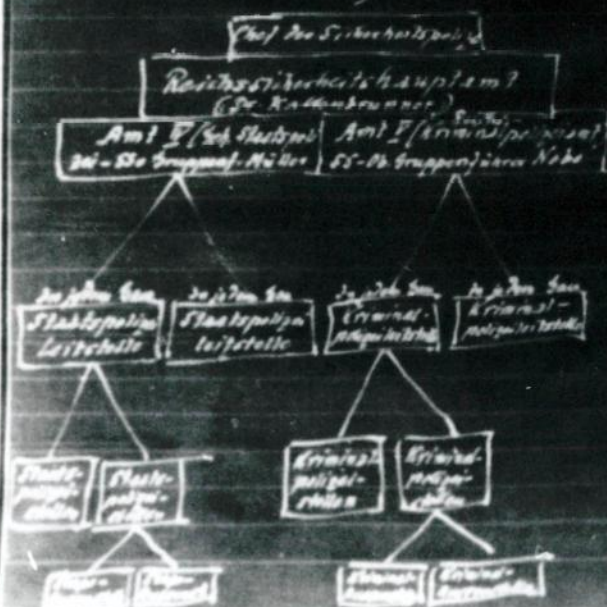 Chef der Sicherheitspolizei
Reichssicherheitshauptamt
(Dr. Kaltenbrunner)
Amt IV (Geh. Staatspoli
zei - SS Gruppenf. Müller
Amt V (Kriminalpolizeiamt)
SS-Ob. Gruppenführer Nebe
In jedem Gau
Staatspolizei
leitstelle
In jedem Gau
Staatspolizei
leitstelle
In jedem Gau
Kriminal-
polizeileitstelle
In jedem Gau
Kriminal-
polizeileitstelle
Staats-
polizei-
stellen
Staats-
polizei-
stellen
Kriminal-
polizei-
stellen
Kriminal-
polizei-
stellen
Kriminal-
Kriminal-